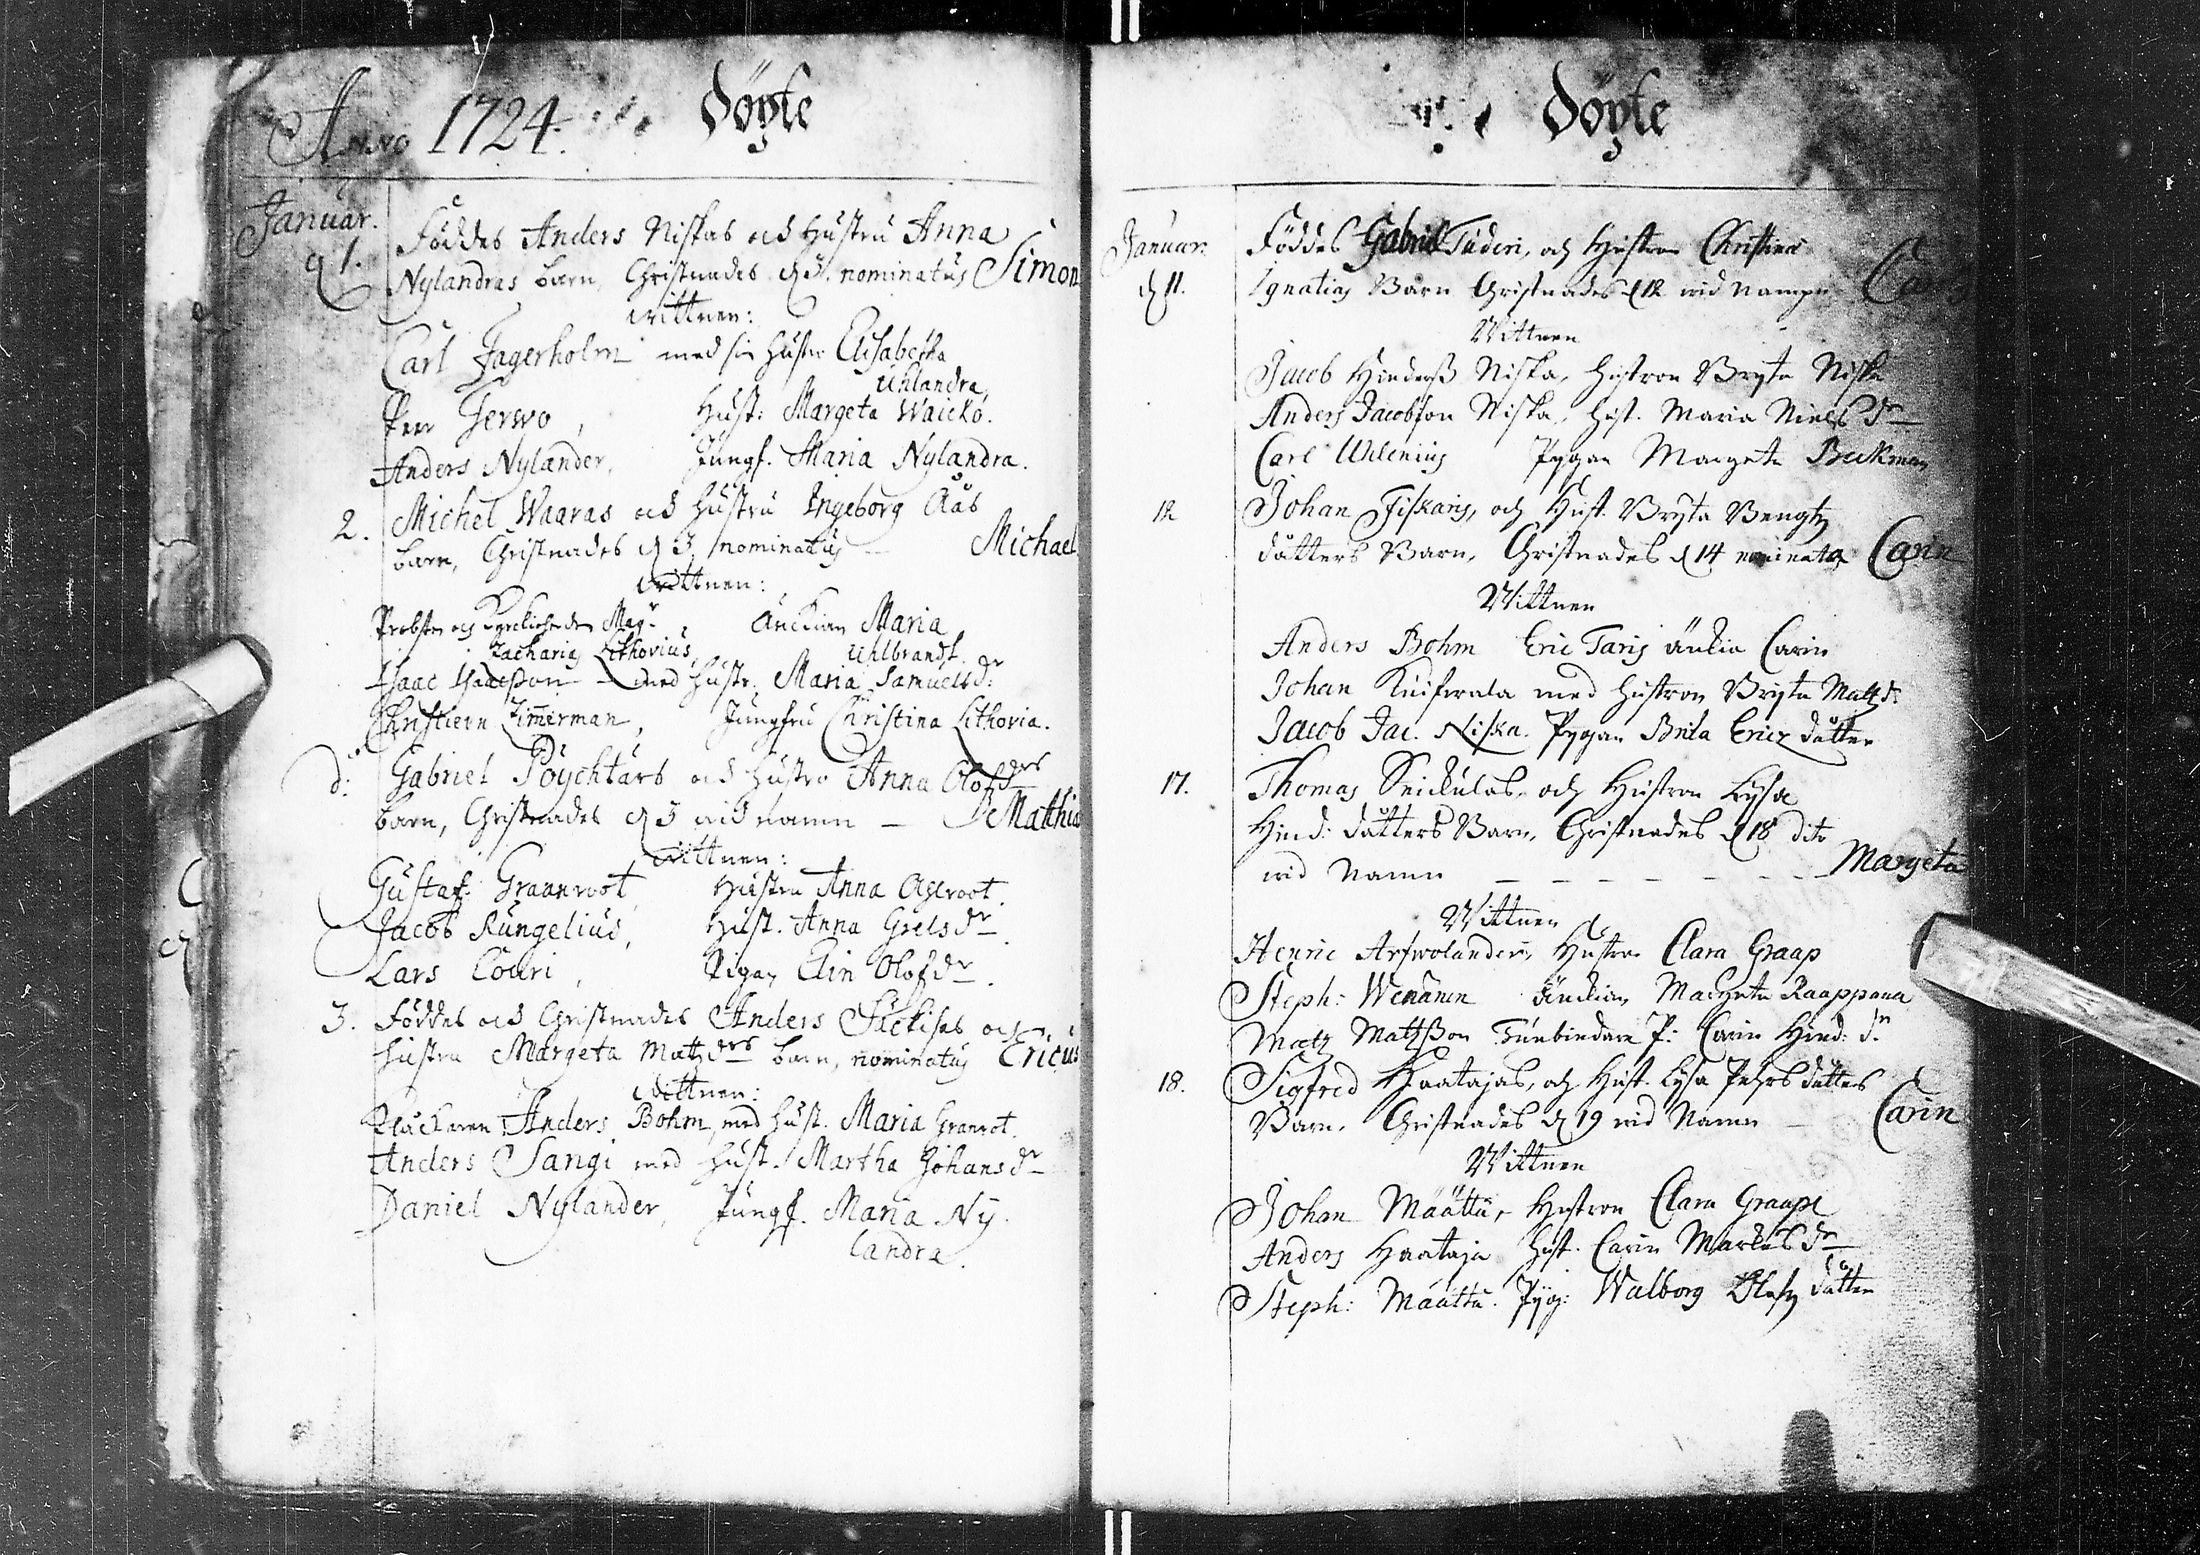 Anno 1724. döpte
Januar.
d 1. Föddes Anders Niskas och Hustru Anna
Nylandras barn, Christnades d 3. nominatus Simon
wittnen:
Carl Fagerholm med sin hustru Elisabetha
Uhlandra,
Perr Terwo, Hust: Margeta Waicko.
Anders Nylander, Jungf. Maria Nylandra.
2. Michel Waaras och hustru Ingeborg Åås
barn, Christnades d 3. nominatus — Michael
wittnen:
Probsten och Kyrckioherden Mag.r Änckian Maria
Zacharias Lithovius, Uhlbrandt
Isaac Isaacsson med hustr. Maria Samuels dr.
Christiern Zimerman, Jungfru Christina Lithovia.
d:o Gabriel Pöychtärs och hustro Anna Olofdrs
barn, Christnades d 3 wid namn — Matthias
wittnen:
Gustaf Graanroot, Hustru Anna Ahlroot.
Jacob Kungelius, Hust. Anna Grels dr.
Lars Louri, Pigan Elin Olofdr.
3. Föddes och Christnades Anders Säckilas och
hustru Margeta Matzdrs barn, nominatus Ericus
wittnen:
Kluckaren Anders Bohm, med hust. Maria Granrot.
Anders Sangi med hust. Martha Johansdr
Daniel Nylander, Jungf. Maria Ny-
landra.
döpte
Januar.
d 11. Föddes Gabriel Tuderi, och Hustrus Christina
Ignatius Barn Christnades d 12 wid nampn Carl
Wittnen
Jacob Hinderss Niska, hustron Bryta Niska
Anders Jacobsson Niska, hust. Maria Niels dr
Carl Uhlenius Pygan Margeta Beckman
12 Johan Fiskars, och Hust. Bryta Bengtz
dåtters Barn, Christnades d 14 nominata Carin
Wittnen
Anders Bohm Eric Taris änkia Carin
Johan Kuiwala med hustron Bryta Matzd:
Jacob Jac. Niska. Pygan Brita Ericz dåtter
17. Thomas Seickulas, och Hustron Lysa
Hind: dåtters Barn, Christnades d 18 dito
wid Namn — — — — — — — Margeta
Wittnen
Henric Arfwolander, Hustro Clara Graap
Steph: Wenänen Änckian Margeta Raappana
Matz Matzsson Tunbindare P: Carin Hind: dr
18. Sigfred Haatajas, och Hust. Lysa Pehrs dåtters
Barn, Christnades d 19 wid Namn — Carin
Wittnen
Johan Määttä, Hustron Clara Graape
Anders Haataja Hust. Carin Markus dr
Steph: Määttä. Pyg: Walborg Olofz dåtter